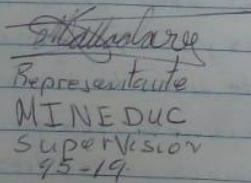 Representante
MINEDUC
Supervisión
95-19.